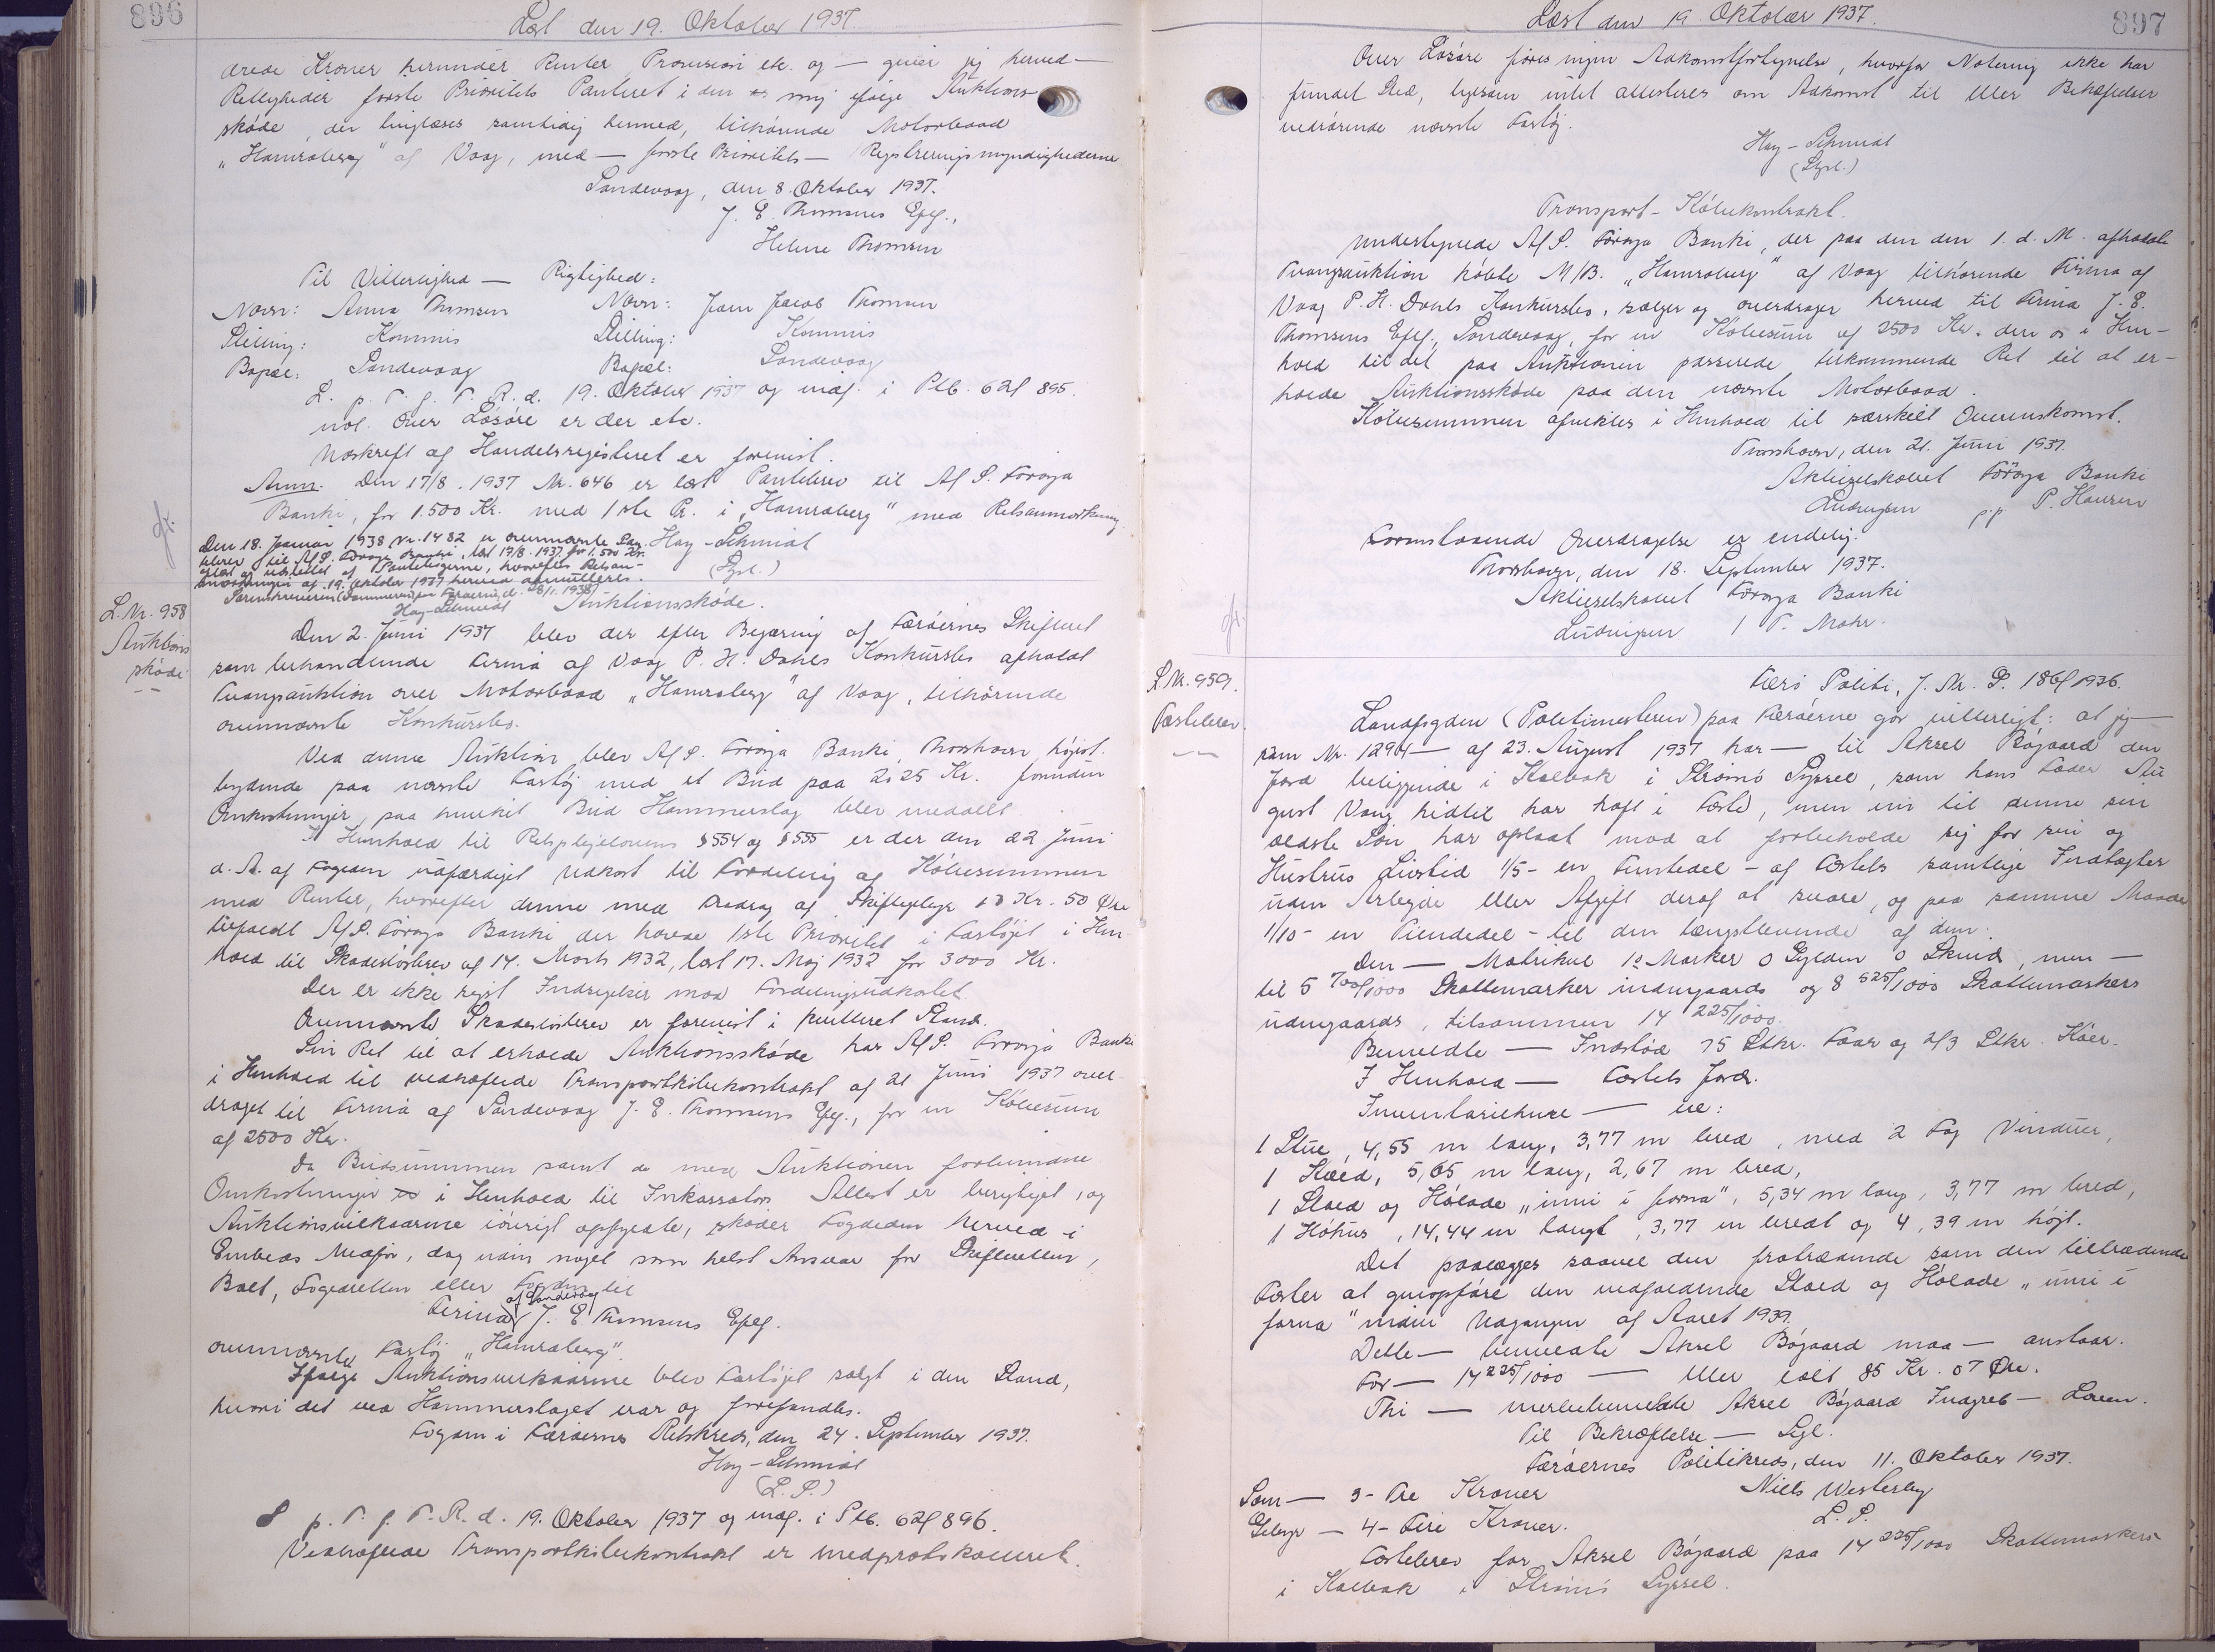 896
Læst den 19. Oktober 1937.
drede Kroner herunder Renter Provision etc. og — giver jeg herved —
Rettigheder første Prioritets Panteret i den mig ifølge Auktions-
skøde, der tinglæses samtidig hermed, tilhørende Motorbaad
„Hamraberg" af Vaag, med — første Prioritets — Registreringsmyndighederne
Sandevaag, den 8. Oktober 1937.
J. E. Thomsens Eftf.,
Helene Thomsen
Til Vitterlighed — Rigtighed:
Navn: Anna Thomsen Navn: Joen Jacob Thomsen
Stilling: Kommis Stilling: Kommis
Bopæl: Sandevaag Bopæl: Sandevaag
L. p. T. f. F. R. d. 19. Oktober 1937 og indf. i Ptb. 62f 895.
Over Løsøre er der etc.
Udskrift af Handelsregisteret er forevist.
Anm. Den 17/8. 1937 Nr. 646 er læst Pantebrev til A/S. Føroya
Banki, for 1.500 Kr. med 1ste Pr. i „Hamraberg" med Retsanmærkning.
Hay-Schmidt
(Syssl.)
Den 18. Januar 1938 Nr. 1482 er ovennævnte Pan-
tebrev til A/S. Føroya Banki, læst 17/8. 1937 for 1.500 Kr.
aflæst og udslettet af Pantebøgerne, hvorefter Retsan-
mærkningen af 19. Oktober 1937 herved annulleres.
Sorenskriveren (Dommeren) paa Færøerne, d. 18/1. 1938
Hay-Schmidt
L. Nr. 958
Auktions
skøde
Auktionsskøde.
Den 2. Juni 1937 blev der efter Begæring af Færøernes Skifteret
som behandlende Firma af Vaag P. H. Dahls Konkursbo afholdt
Tvangsauktion over Motorbaad „Hamraberg" af Vaag, tilhørende
ovennævnte Konkursbo.
Ved denne Auktion blev A/S. Føroya Banki, Thorshavn højst-
bydende paa nævnte Fartøj med et Bud paa 2525 Kr. foruden
Omkostninger, paa hvilket Bud Hammerslag blev meddelt.
I Henhold til Retsplejelovens § 554 og § 555 er der den 22 Juni
d. A. af Fogden udfærdiget Udkast til Fordeling af Købesummen
med Renter, hvorefter denne med Fradrag af Skiftegebyr 13 Kr. 50 Øre
tilfaldt A/S. Føroya Banki der havde 1ste Prioritet i Fartøjet i Hen-
hold til Skadesløsbrev af 14. Marts 1932, læst 17. Maj 1932 for 3000 Kr.
Der er ikke rejst Indsigelser mod Fordelingsudkastet.
Ovennævnte Skadesløsbrev er forevist i kvitteret Stand.
Sin Ret til at erholde Auktionsskøde har A/S. Føroya Banki
i Henhold til vedhæftede Transportkøbekontrakt af 21 Juni 1937 over-
draget til Firma af Sandevaag J. E. Thomsens Eftf., for en Købesum
af 2500 Kr.
Da Budsummen samt de med Auktionen forbundne
Omkostninger i Henhold til Inkassators Attest er berigtiget, og
Auktionsvilkaarene iøvrigt opfyldte, skøder Fogden herved i
Embeds Medfør, dog uden noget som helst Ansvar for Skifteretten,
Boet, Fogedretten eller Fogden til
Firma af Sandevaag J. E. Thomsens Eftf.
ovennævnte Fartøj „Hamraberg".
Ifølge Auktionsvilkaarene blev Fartøjet solgt i den Stand,
hvori det ved Hammerslaget var og forefandtes.
Fogden i Færøernes Retskreds, den 24. September 1937.
Hay-Schmidt
(L. S.)
L p. T. f. F. R. d. 19. Oktober 1937 og indf. i Ptb. 62f 896.
Vedhæftede Transportkøbekontrakt er medprotokolleret.
897
Læst den 19. Oktober 1937.
Over Løsøre føres ingen Adkomstfortegnelse, hvorfor Notering ikke har
fundet Sted, ligesom intet attesteres om Adkomst til eller Behæftelser
vedrørende nævnte Fartøj.
Hay-Schmidt
(Syssl.)
Transport-Købekontrakt.
Undertegnede A/S. Føroya Banki, der paa den den 1. d. M. afholdte
Tvangsauktion købte M/B. „Hamraberg" af Vaag tilhørende Firma af
Vaag P. H. Dahls Konkursbo, sælger og overdrager herved til Firma J. E.
Thomsens Eftf., Sandevaag, for en Købesum af 2500 Kr. den os i Hen-
hold til det paa Auktionen passerede tilkommende Ret til at er-
holde Auktionsskøde paa den nævnte Motorbaad.
Købesummen afvikles i Henhold til særskilt Overenskomst.
Thorshavn, den 21. Juni 1937.
Aktieselskabet Føroya Banki
Ludvigsen p.p. P. Hansen
Foranstaaende Overdragelse er endelig.
Thorshavn, den 18. September 1937.
Aktieselskabet Føroya Banki
Ludvigsen / T. Mohr.
L Nr. 959.
Fæstebrev.
Færø Politi, J. Nr. S. 186/1936.
Landfogden (Politimesteren) paa Færøerne gør vitterligt: at jeg —
som Nr. 1294 — af 23. August 1937 har — til Aksel Bøgaard den
Jord beliggende i Kalbak i Strømø Syssel, som hans Fader Au-
gust Vang hidtil har haft i Fæste, men nu til denne sin
ældste Søn har opladt mod at forbeholde sig for sin og
Hustrus Livstid 1/5 - en Femtedel - af Fæstets samtlige Indtægter
uden Arbejde eller Afgift deraf at svare, og paa samme Maade
1/10 - en Tiendedel - til den længstlevende af dem.
Den — Matrikul 12 Marker 0 Gylden 0 Skind, men —
til 5 700/1000 Skattemarker indengaards og 8 525/1000 Skattemarkers
udengaards, tilsammen 14 225/1000.
Bemeldte — Indstød 75 Stkr. Faar og 2/3 Stkr. Køer.
I Henhold — Fæstets Jord.
Inventariehuse — ere:
1 Stue, 4,55 m lang, 3,77 m bred, med 2 Fag Vinduer,
1 Stald, 5,65 m lang, 2,67 m bred,
1 Stald og Hølade „inni í forna", 5,34 m lang, 3,77 m bred,
1 Høhus, 14,44 m langt, 3,77 m bredt og 4,39 m højt.
Det paalægges saavel den fratrædende som den tiltrædende
Fæster at genopføre den nedfaldende Stald og Hølade „inni í
forna" inden Udgangen af Aaret 1939.
Dette — bemeldte Aksel Bøgaard maa — anstaar.
For — 14 225/1000 — eller ialt 85 Kr. 07 Øre.
Thi — merbebemeldte Aksel Bøgaard Indgreb — Loven.
Til Bekræftelse — Segl.
Færøernes Politikreds, den 11. Oktober 1937.
Som — 3 - Tre Kroner Niels Westerby
Gebyr — 4 - Fire Kroner. L. S.
Fæstebrev for Aksel Bøgaard paa 14 225/1000 Skattemarkers
i Kalbak i Strømø Syssel.